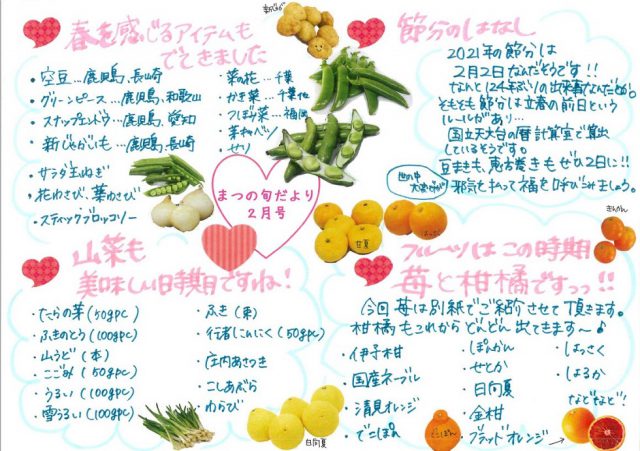 新じゃが
春を感じるアイテムも
でてきました
・空豆…鹿児島、長崎
・グリーンピース…鹿児島、和歌山
・スナップエンドウ…鹿児島、愛知
・新じゃがいも…鹿児島、長崎
・サラダ玉ねぎ
・花わさび、葉わさび
・スティックブロッコリー
・菜の花…千葉
・かき菜…千葉他
・つぼみ菜…福岡
・芽キャベツ
・セリ
節分のはなし
2021年の節分は
2月2日なんだそうです!!
なんと124年ぶりの出来事なんだとか。
そもそも節分は立春の前日という
ルールがあり…
国立天文台の暦計算室で算出
しているそうです。
豆まきも、恵方巻きもぜひ2日に!!
邪気を払って福を呼びみましょう。
世の中
まつの旬だより
2月号
甘夏
はっさく
きんかん
山菜も
美味しい時期ですね!
・たらの芽(50gpc)
・ふきのとう(100gpc)
・山うど(本)
・こごみ(50gpc)
・うるい(100gpc)
・雪うるい(100gpc)
・ふき(束)
・行者にんにく(50gpc)
・庄内あさつき
・こしあぶら
・わらび
日向夏
フルーツはこの時期
苺と柑橘ですっっ!!
今回苺は別紙でご紹介させて頂きます。
柑橘もこれからどんどん出てきます〜♪
・伊予柑
・国産ネーブル
・清見オレンジ
・でこぽん
・ぽんかん
・せとか
・日向夏
・金柑
・ブラッドオレンジ
・はっさく
・はるか
などなど!
でこぽん